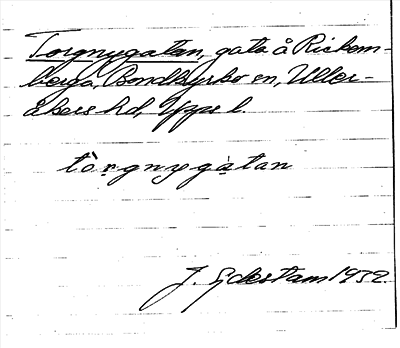 Torgnygatan, gata å Rickom-
berga, Bondkyrko sn, Uller-
åkers hd, Upps l.
tòrgnygàtan
J. Sjdestam 1932.